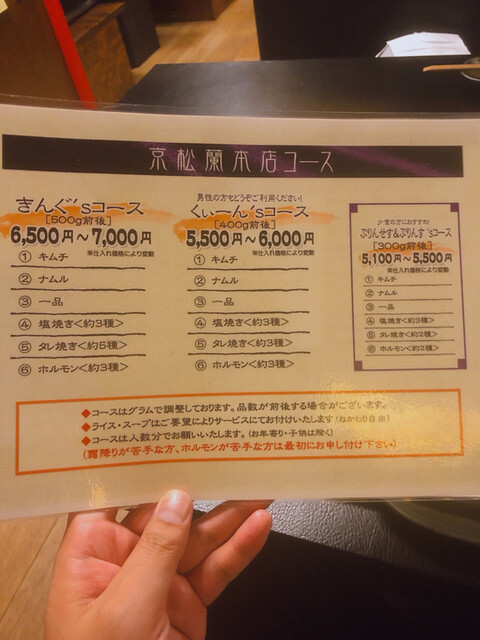 京松蘭本店コース
きんぐ'sコース
[500g前後]
6,500円～7,000円
※仕入れ価格により変動
① キムチ
② ナムル
③ 一品
④ 塩焼き<約3種>
⑤ タレ焼き<約5種>
⑥ ホルモン<約3種>
男性の方もどうぞご利用ください！
くぃーん'sコース
[400g前後]
5,500円～6,000円
※仕入れ価格により変動
① キムチ
② ナムル
③ 一品
④ 塩焼き<約3種>
⑤ タレ焼き<約3種>
⑥ ホルモン<約3種>
少食の方におすすめ！
ぷりんせす&ぷりんす'sコース
[300g前後]
5,100円～5,500円
※仕入れ価格により変動
① キムチ
② ナムル
③ 一品
④ 塩焼き<約3種>
⑤ タレ焼き<約2種>
⑥ ホルモン<約2種>
◆コースはグラムで調整しております。品数が前後する場合がございます。
◆ライス・スープはご要望によりサービスにてお付けいたします（おかわり自由）
◆コースは人数分でお願いいたします。（お年寄り・子供は除く）
（霜降りが苦手な方、ホルモンが苦手な方は最初にお申し付け下さい）